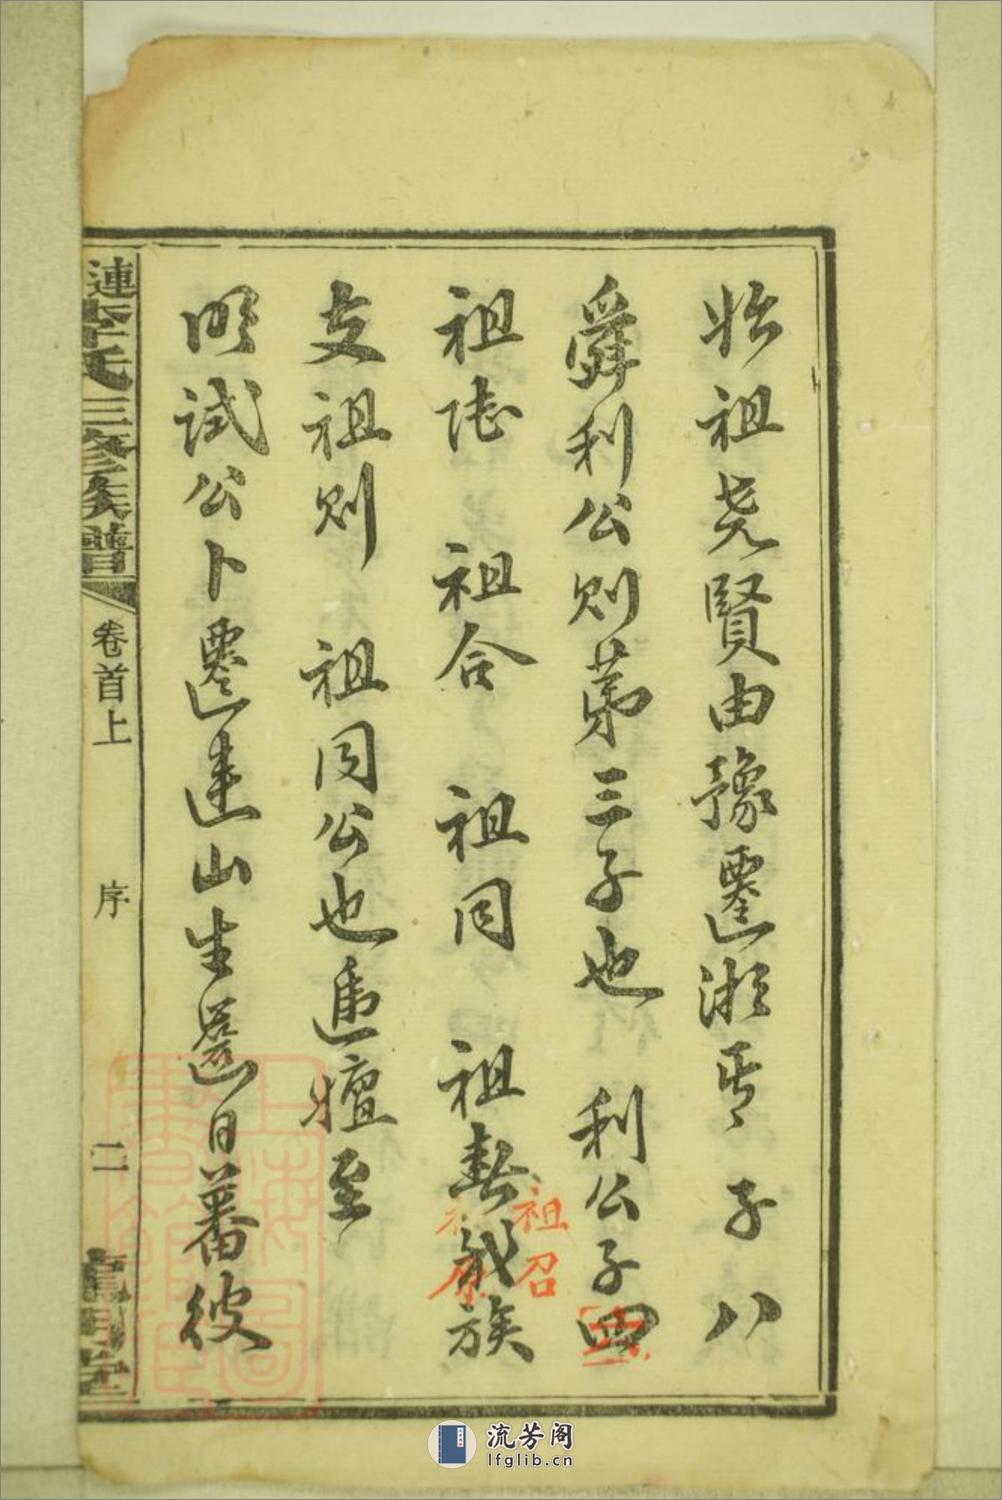 始祖尧賢由豫遷湘享子八
舜利公则第三子也 利公子四
祖陆 祖合 祖同 祖
族
祖召
支祖则 祖同公也遞嬗至
明試公卜遷建山生齒日蕃彼
漣李氏三修族譜
卷首上
序
二
堂
流芳阁
lfglib.cn